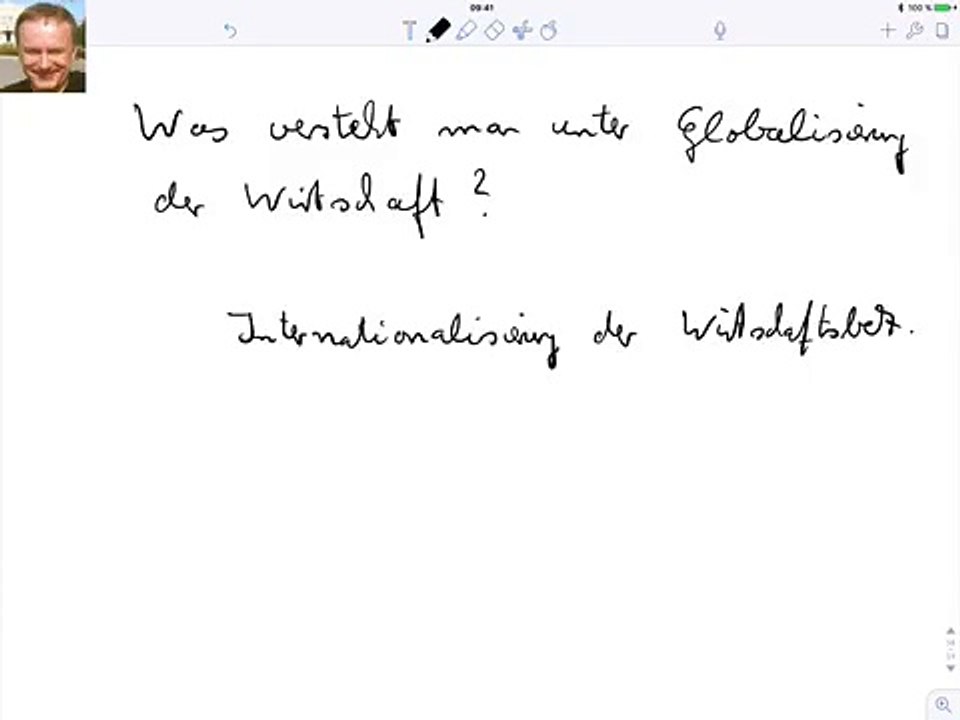 09:41
100 %
T
Was versteht man unter Globalisierung
der Wirtschaft?
Internationalisierung der Wirtschaftsbez.